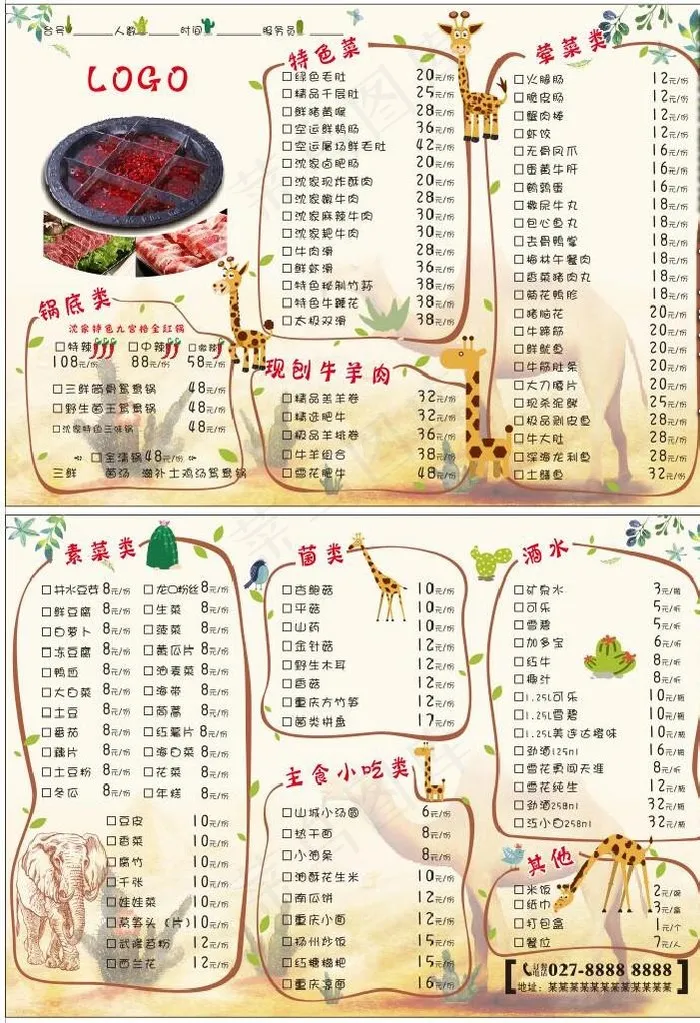 台号 人数 时间 服务员
LOGO
特色菜
绿色毛肚 20元/份
精品千层肚 25元/份
鲜猪黄喉 28元/份
空运鲜鹅肠 36元/份
空运屠场鲜毛肚 42元/份
沈家卤肥肠 30元/份
沈家现炸酥肉 28元/份
沈家嫩牛肉 28元/份
沈家麻辣牛肉 30元/份
沈家耙牛肉 30元/份
牛肉滑 28元/份
鲜虾滑 36元/份
特色秘制竹荪 38元/份
特色牛鞭花 38元/份
太极双滑 38元/份
荤菜类
火腿肠 12元/份
脆皮肠 12元/份
蟹肉棒 12元/份
虾饺 12元/份
无骨凤爪 16元/份
蛋黄牛肝 16元/份
鹌鹑蛋 16元/份
撒尿牛丸 18元/份
包心鱼丸 18元/份
去骨鸭掌 18元/份
梅林午餐肉 18元/份
香菜猪肉丸 18元/份
菊花鸭胗 18元/份
猪脑花 20元/份
牛蹄筋 20元/份
鲜鱿鱼 20元/份
牛筋肚条 20元/份
大刀腰片 20元/份
现杀泥鳅 25元/份
极品剥皮鱼 28元/份
牛大肚 28元/份
深海龙利鱼 28元/份
土鳝鱼 32元/份
锅底类
沈家特色九宫格全红锅
特辣 中辣 微辣
108元/份 88元/份 58元/份
三鲜筒骨鸳鸯锅 48元/份
野生菌王鸳鸯锅 48元/份
沈家特色三味锅 48元/份
全清锅48元/份
三鲜 菌汤 滋补土鸡汤鸳鸯锅
现刨牛羊肉
精品羔羊卷 32元/份
精选肥牛 32元/份
极品羊排卷 36元/份
牛羊组合 38元/份
雪花肥牛 48元/份
素菜类
井水豆芽 8元/份 龙口粉丝 8元/份
鲜豆腐 8元/份 生菜 8元/份
白萝卜 8元/份 菠菜 8元/份
冻豆腐 8元/份 黄瓜片 8元/份
鸭血 8元/份 油麦菜 8元/份
大白菜 8元/份 海带 8元/份
土豆 8元/份 茼蒿 8元/份
番茄 8元/份 红薯片 8元/份
藕片 8元/份 海白菜 8元/份
土豆粉 8元/份 花菜 8元/份
冬瓜 8元/份 年糕 8元/份
豆皮 10元/份
香菜 10元/份
腐竹 10元/份
千张 10元/份
娃娃菜 10元/份
莴笋头（片） 10元/份
武隆苕粉 12元/份
西兰花 12元/份
菌类
杏鲍菇 10元/份
平菇 10元/份
山药 10元/份
金针菇 12元/份
野生木耳 12元/份
香菇 12元/份
重庆方竹笋 12元/份
菌类拼盘 17元/份
主食小吃类
山城小汤圆 6元/份
热干面 8元/份
小油条 8元/份
油酥花生米 10元/份
南瓜饼 12元/份
重庆小面 12元/份
扬州炒饭 15元/份
红糖糍粑 15元/份
重庆凉面 16元/份
酒水
矿泉水 3元/瓶
可乐 5元/听
雪碧 5元/听
加多宝 6元/听
红牛 8元/听
椰汁 8元/听
1.25L可乐 10元/瓶
1.25L雪碧 10元/瓶
1.25L美选达橙味 10元/瓶
劲酒125ml 16元/瓶
雪花勇闯天涯 8元/听
雪花纯生 12元/瓶
劲酒258ml 32元/瓶
江小白258ml 32元/瓶
其他
米饭 2元/碗
纸巾 3元/盒
打包盒 1元/个
餐位 7元/人
订餐电话 027-8888 8888
地址：某某某某某某某某某某某某